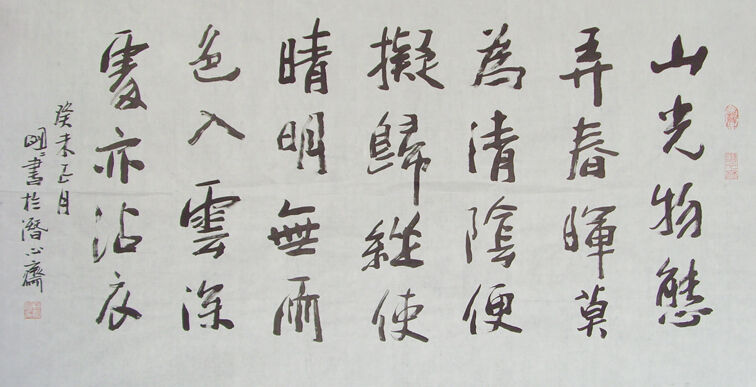 山光物態
弄春暉莫
為清陰便
擬歸縱使
晴明無雨
色入雲深
處亦沾衣
癸未正月
書於潛心齋